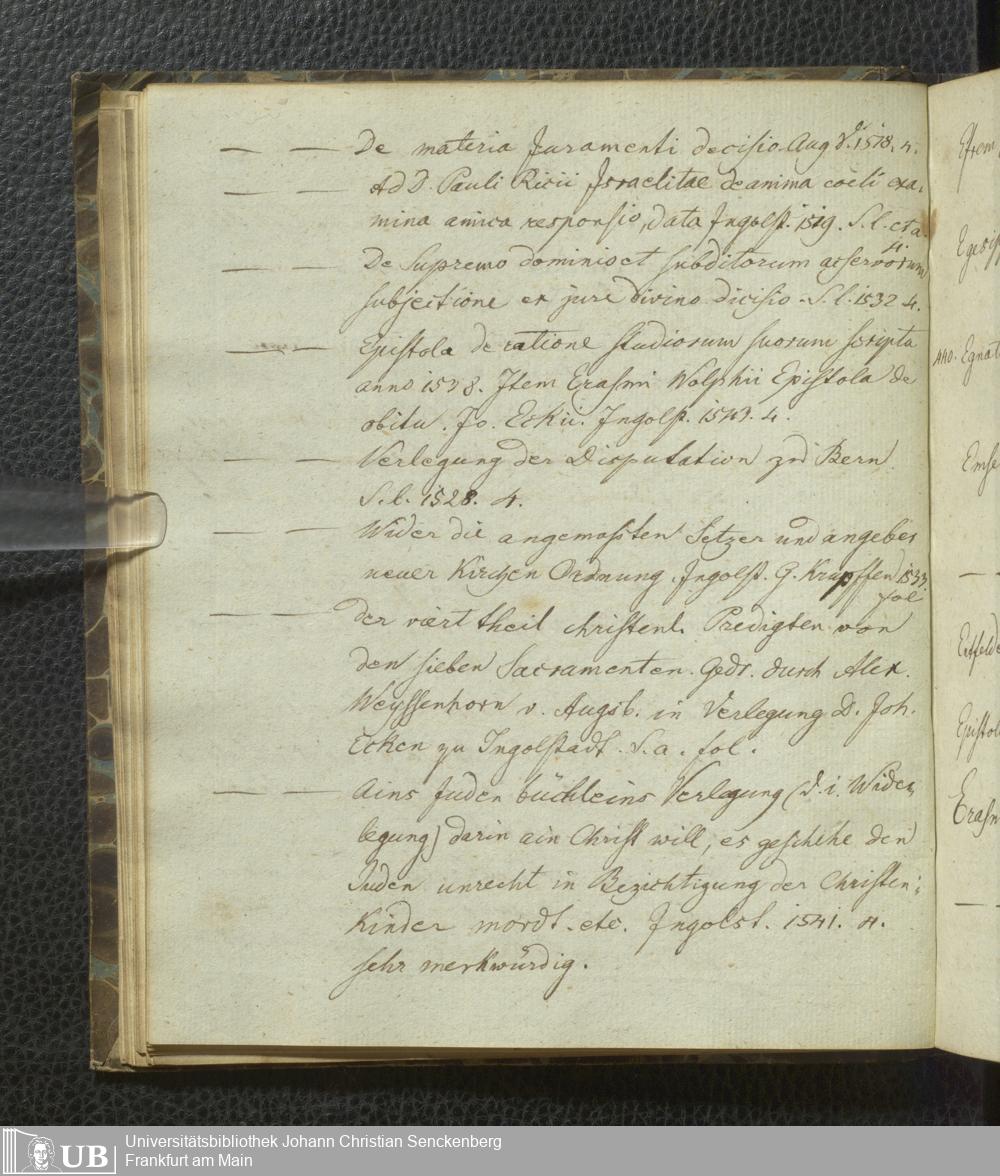 — — De materia Juramenti decisio. Aug V. 1518. 4.
— — Ad D. Pauli Ricii Israelitae de anima coeli exa-
mina amica responsio, data Ingolst. 1519. S. l. et a.
4.
— — De Supremo dominio et subditorum ac servorum
subjectione ex jure divino dicisio. S. l. 1532 4.
— — Epistola de ratione studiorum suorum scripta
anno 1538. Item Erasmi Wolphii Epistola de
obitu. Jo. Eckii. Ingolst. 1543. 4.
— — Verlegung der Disputation zu Bern
S. l. 1528. 4.
— — Wider die angemaßten Setzer und angeber
neuer Kirchen Ordnung. Ingolst. G. Krapffen 1533
fol
— — der viert theil christenl. Predigten von
den sieben Sacramenten. Gedr. durch Alex.
Weyssenhorn v. Augsb. in Verlegung D. Joh.
Ecken zu Ingolstadt. S. a. fol.
— — Ains Juden büchleins Verlegung (d. i. Wider-
legung) darin ain Christ will, es geschehe den
Juden unrecht in Bezichtigung der Christen-
Kinder mordt. etc. Ingolst. 1541. 4.
sehr merkwürdig.
Efrem
Egesip
Egnati
Emse
—
Epistol
Erasm
—
UB
Universitätsbibliothek Johann Christian Senckenberg
Frankfurt am Main